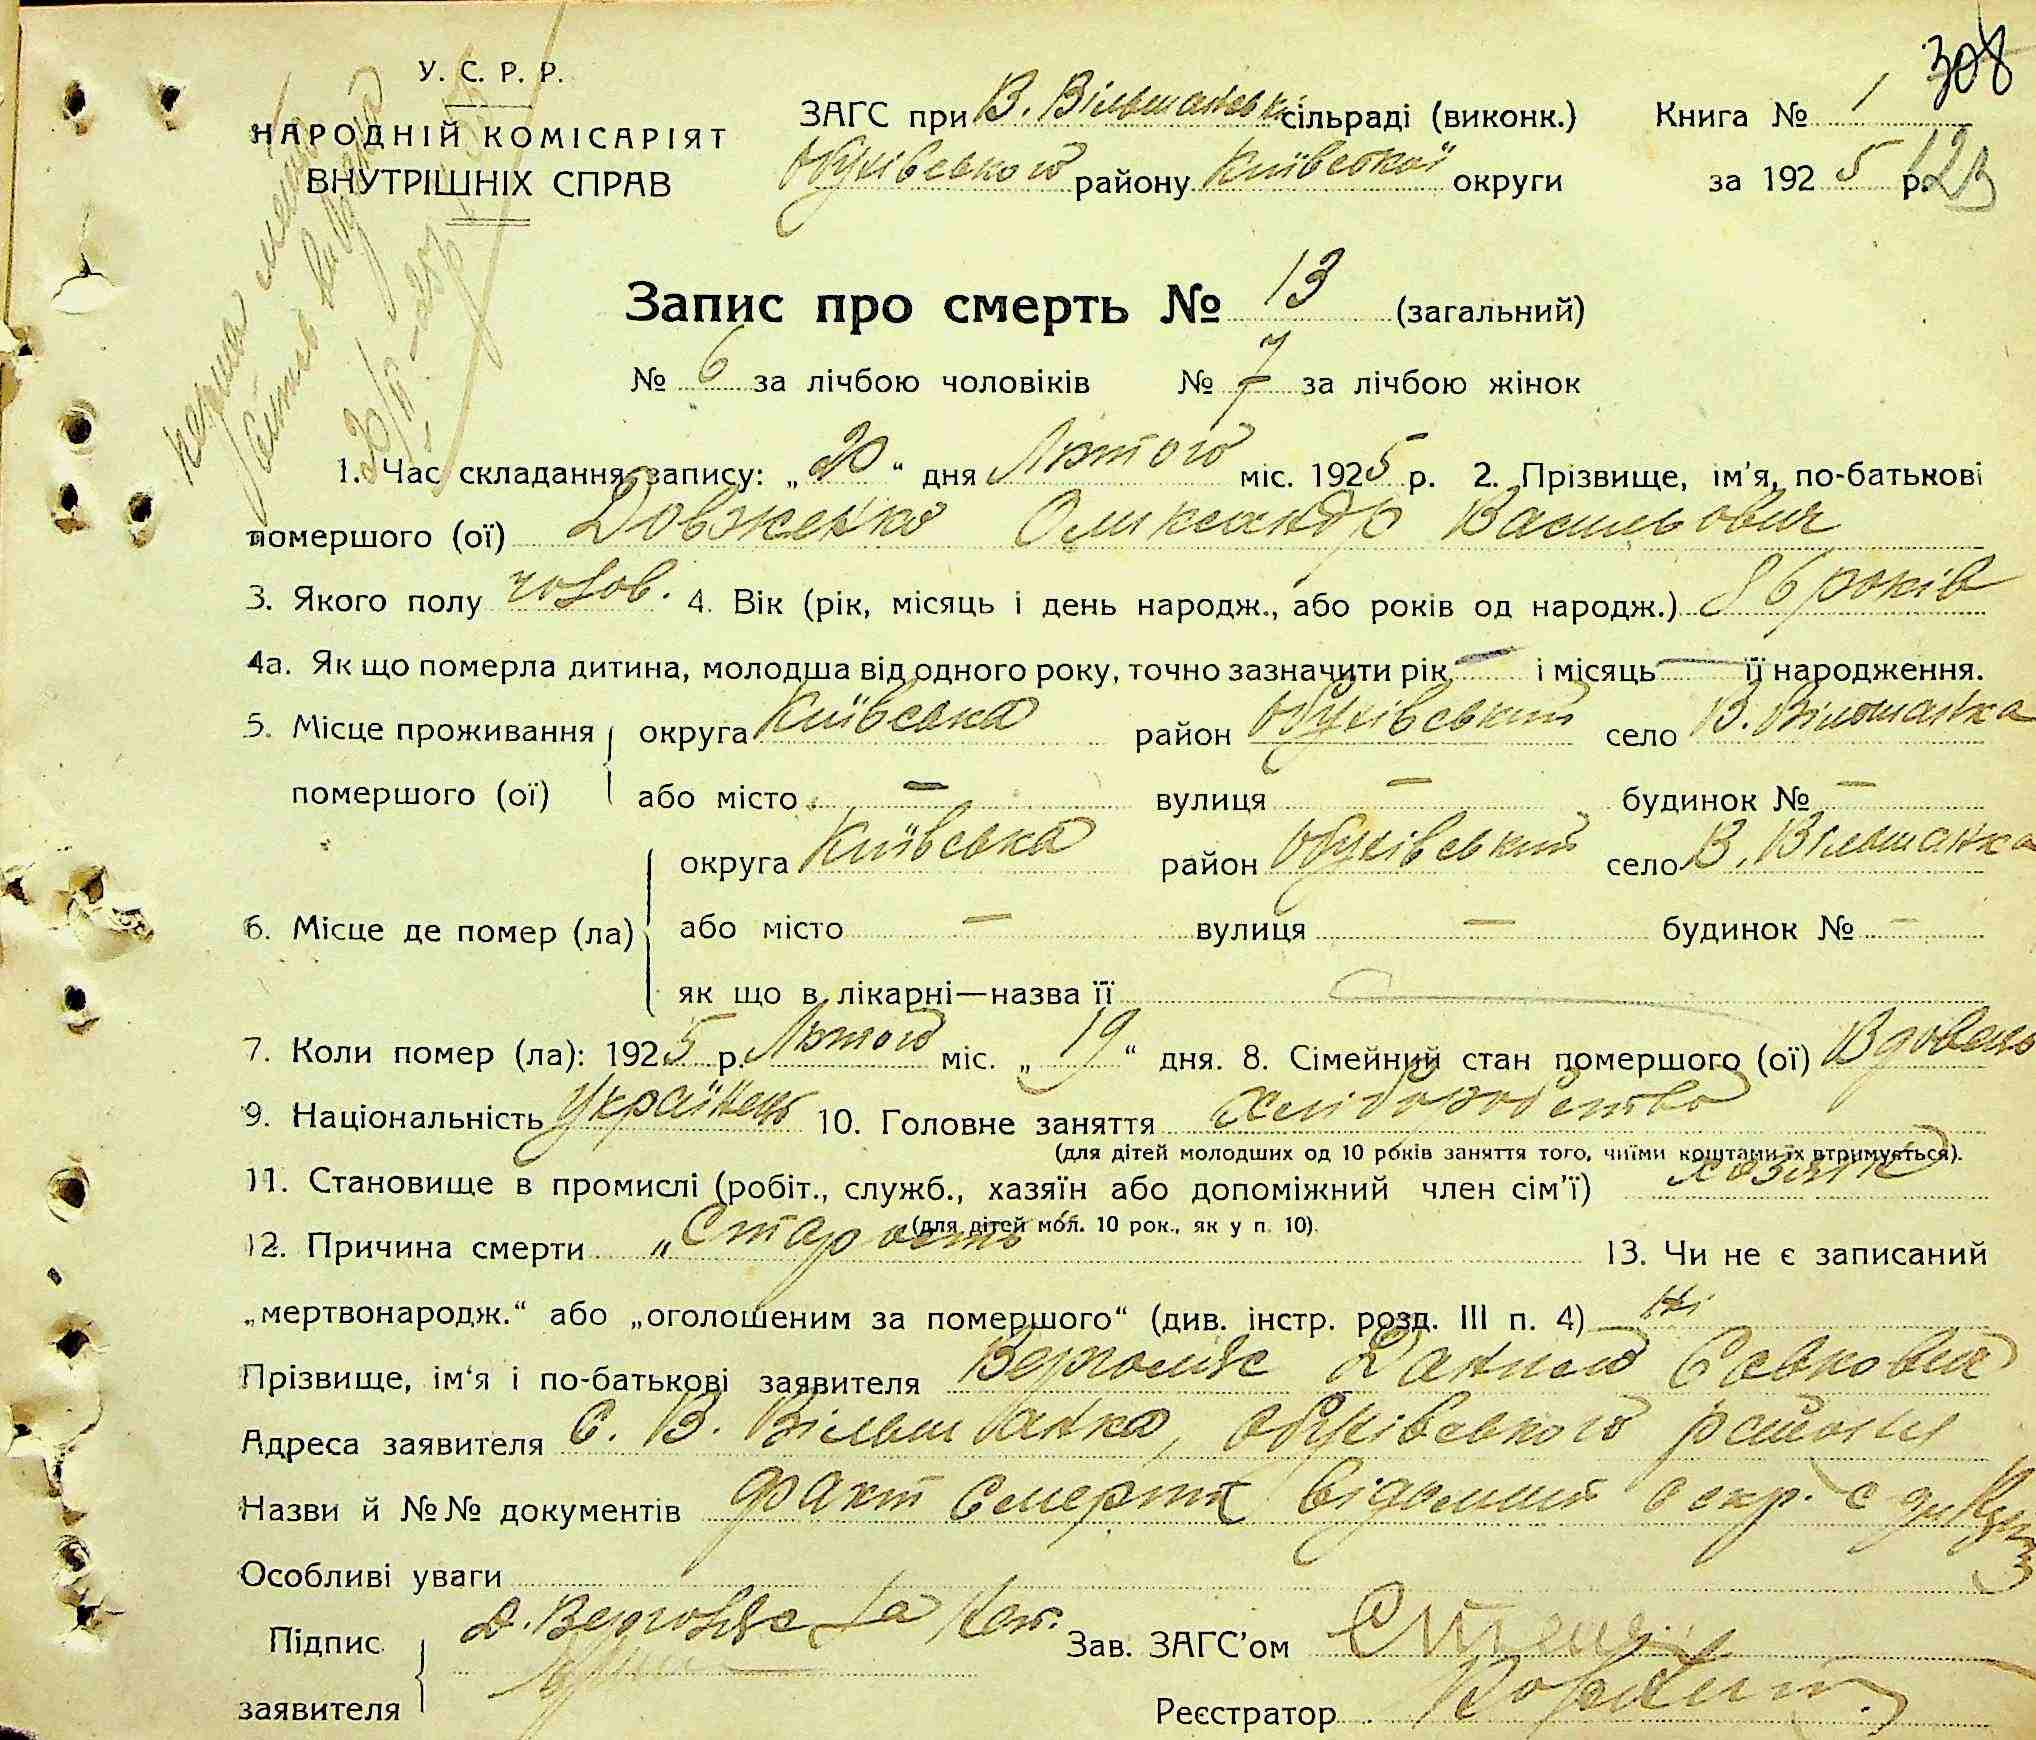 308
У. С. Р. Р.
НАРОДНІЙ КОМІСАРІЯТ
ВНУТРІШНІХ СПРАВ
ЗАГС при В. Вільшанській сільраді (виконк.) Книга № 1
Обухівського району Київської округи за 1925 р.
123
Запис про смерть № 13 (загальний)
№ 6 за лічбою чоловіків № 7 за лічбою жінок
1. Час складання запису: „20“ дня Лютого міс. 1925 р. 2. Прізвище, ім'я, по-батькові
помершого (ої) Довженко Олександр Васильович
3. Якого полу чолов. 4. Вік (рік, місяць і день народж., або років од народж.) 86 років
4а. Як що померла дитина, молодша від одного року, точно зазначити рік — і місяць — її народження.
5. Місце проживання округа Київська район Обухівський село В. Вільшанка
помершого (ої) або місто — вулиця — будинок № —
округа Київська район Обухівський село В. Вільшанка
6. Місце де помер (ла) або місто — вулиця — будинок № —
як що в лікарні—назва її
7. Коли помер (ла): 1925 р. Лютого міс. „19“ дня. 8. Сімейний стан помершого (ої) Вдовець
9. Національність Українець 10. Головне заняття Хліборобство
(для дітей молодших од 10 років заняття того, чиїми коштами їх втримується).
11. Становище в промислі (робіт., служб., хазяїн або допоміжний член сім'ї) хозяїн
(для дітей мол. 10 рок., як у п. 10).
12. Причина смерти „Старость 13. Чи не є записаний
„мертвонародж.“ або „оголошеним за помершого“ (див. інстр. розд. III п. 4) Ні
Прізвище, ім'я і по-батькові заявителя Данило Савкович
Адреса заявителя С. В. Вільшанка, Обухівського району
Назви й №№ документів факт смерти відомий секр.
Особливі уваги
Підпис Д. за
заявителя
Зав. ЗАГС'ом
Реєстратор